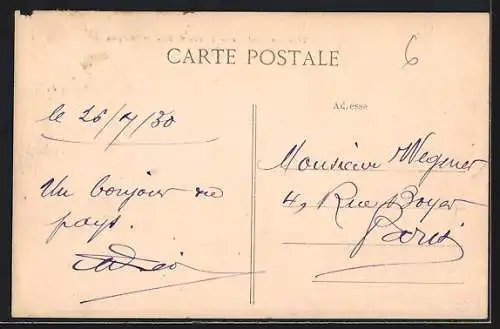 CARTE POSTALE
6
Adresse
le 26/7/30
Un bonjour du
pays.
Monsieur Wegnier
4, Rue Boyer
Paris